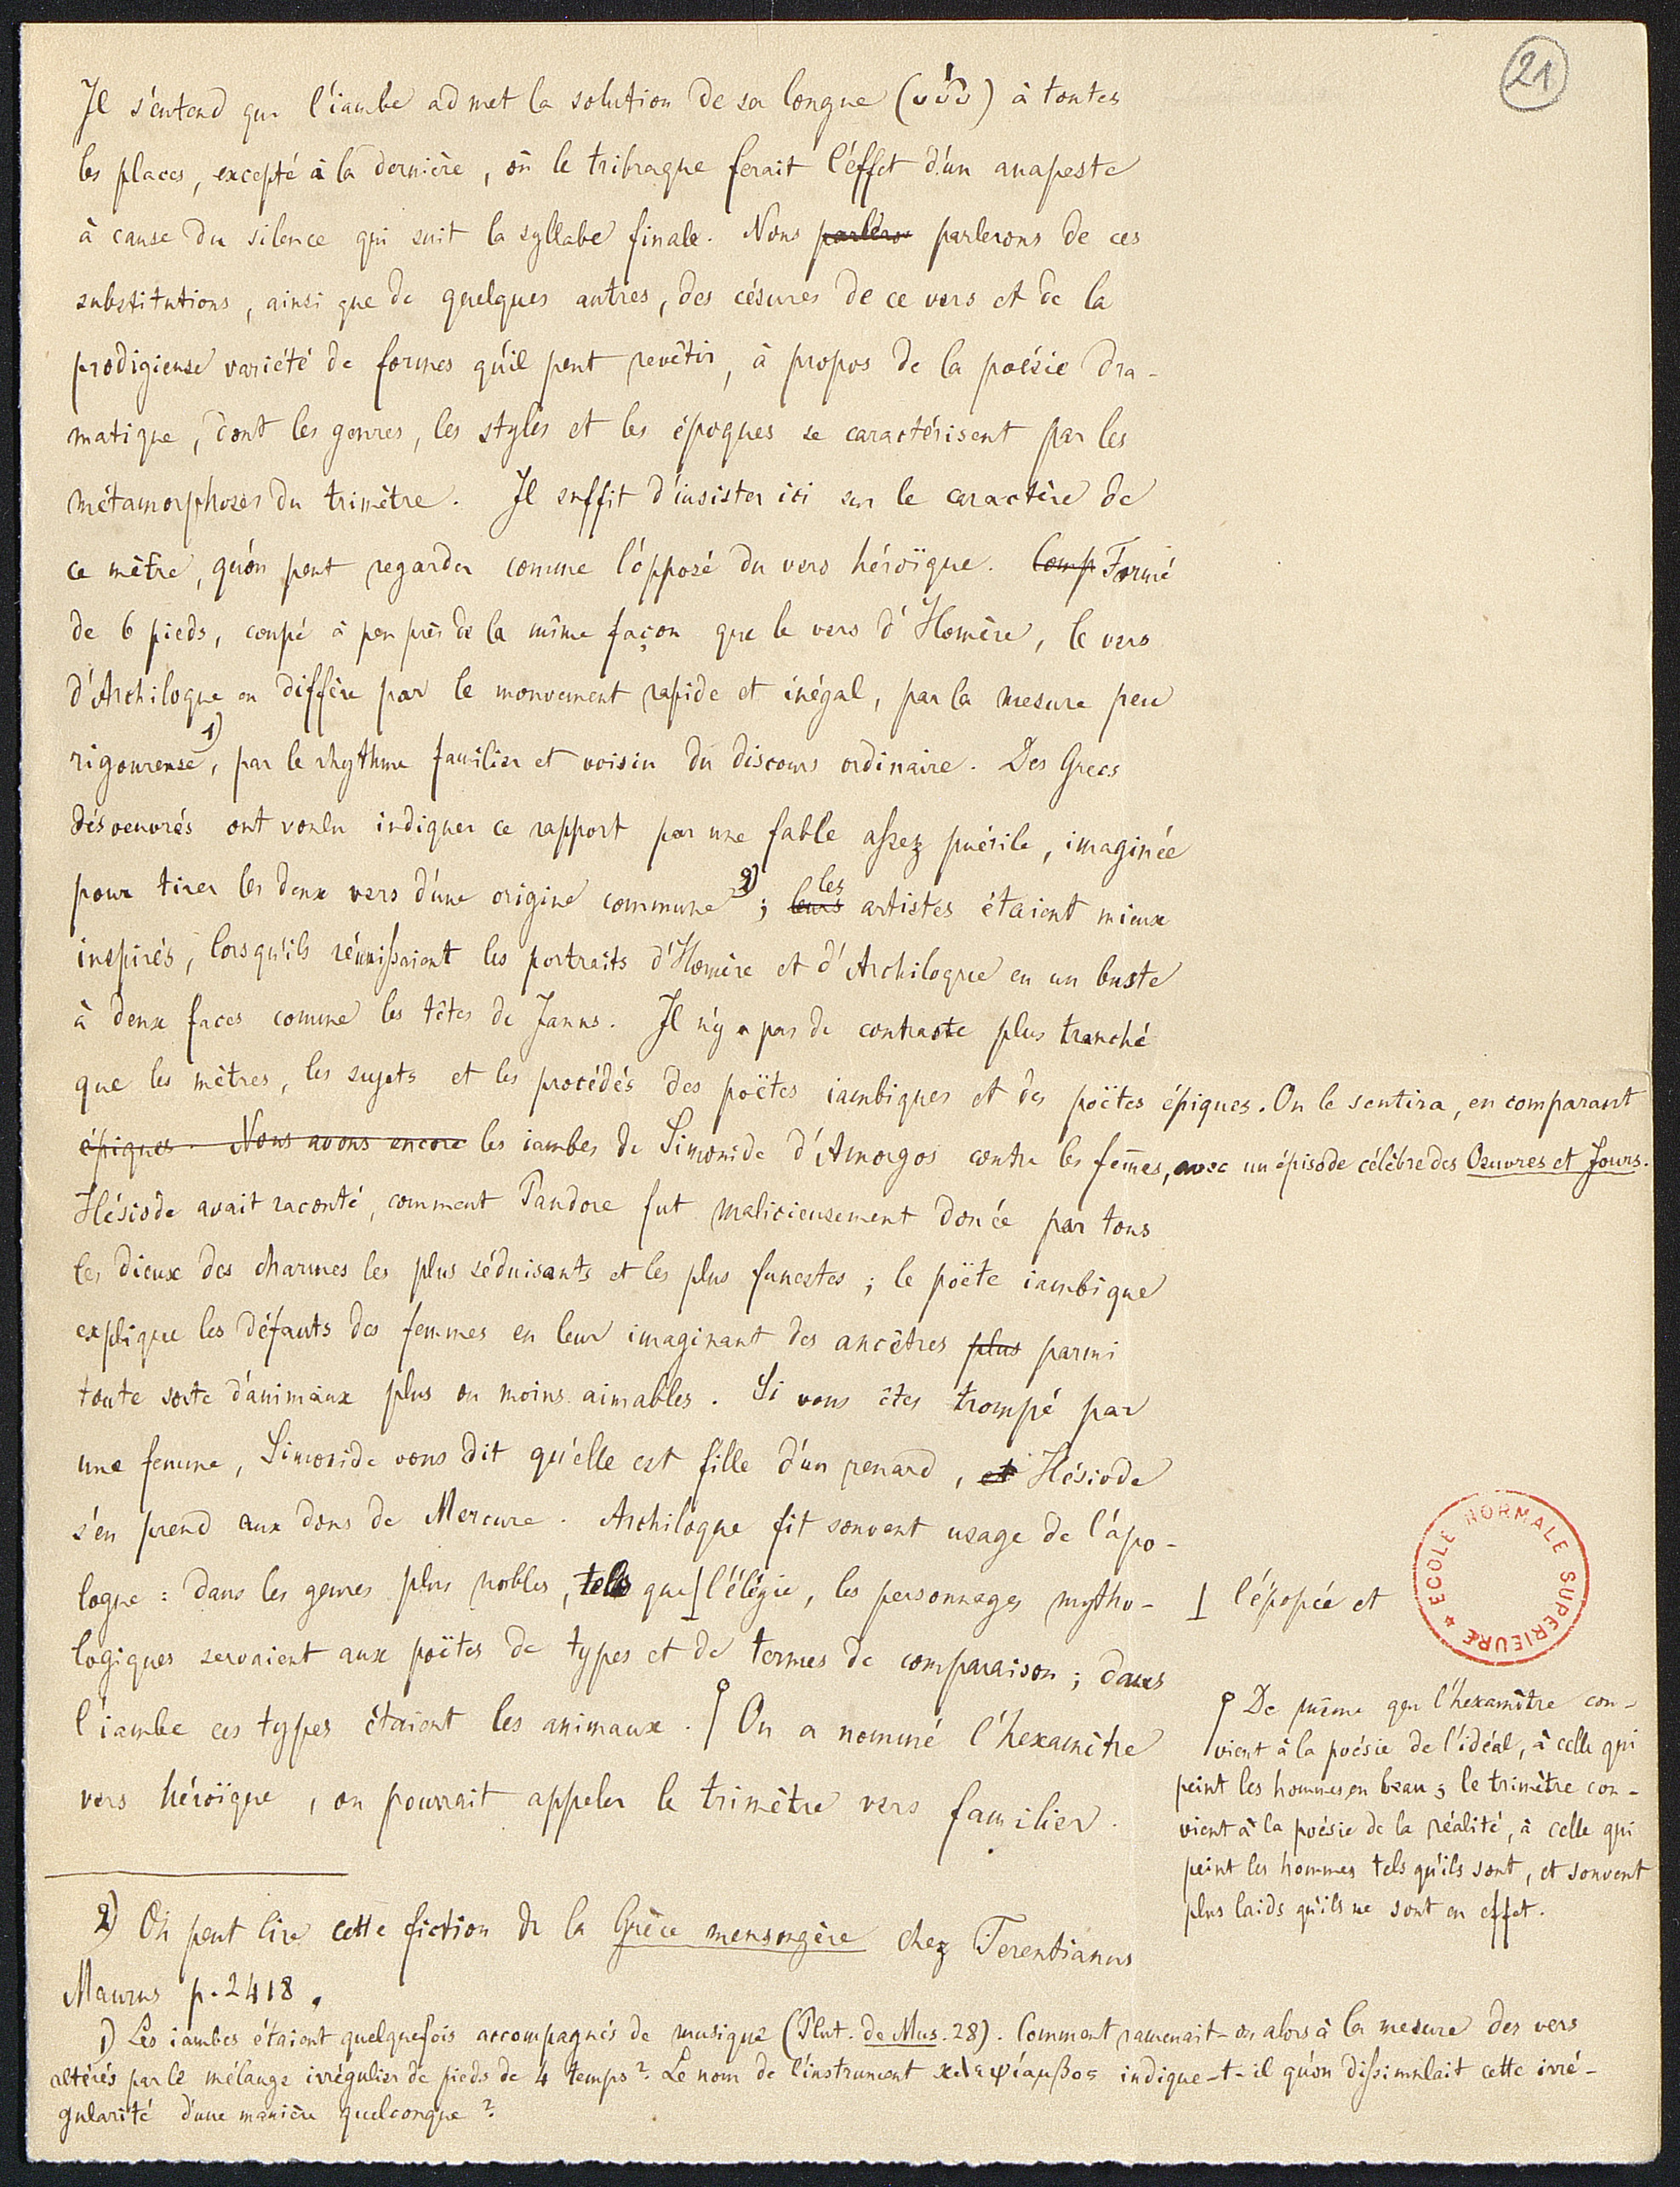 21
Il s'entend que l'iambe admet la solution de sa longue (υύυ) à toutes
les places, excepté à la dernière, où le tribraque ferait l'effet d'un anapeste
à cause du silence qui suit la syllabe finale. Nous parlero parlerons de ces
substitutions, ainsi que de quelques autres, des césures de ce vers et de la
prodigieuse variété de formes qu'il peut revêtir, à propos de la poésie dra-
matique, dont les genres, les styles et les époques se caractérisent par les
métamorphoses du trimètre. Il suffit d'insister ici sur le caractère de
ce mètre, qu'on peut regarder comme l'opposé du vers héroïque. Comp Formé
de 6 pieds, coupé à peu près de la même façon que le vers d'Homère, le vers
d'Archiloque en diffère par le mouvement rapide et inégal, par la mesure peu
rigoureuse 1), par le rhythme familier et voisin du discours ordinaire. Des Grecs
désœuvrés ont voulu indiquer ce rapport par une fable assez puérile, imaginée
pour tirer les deux vers d'une origine commune 2); leurs les artistes étaient mieux
inspirés, lorsqu'ils réunissaient les portraits d'Homère et d'Archiloque en un buste
à deux faces comme les têtes de Janus. Il n'y a pas de contraste plus tranché
que les mètres, les sujets et les procédés des poëtes iambiques et des poëtes épiques. On le sentira, en comparant
épiques. Nous avons encore les iambes de Simonide d'Amorgos contre les fem̄es, avec un épisode célèbre des Oeuvres et Jours.
Hésiode avait raconté, comment Pandore fut malicieusement donée par tous
les dieux des charmes les plus séduisants et les plus funestes; le poëte iambique
explique les défauts des femmes en leur imaginant des ancêtres plus parmi
toute sorte d'animaux plus ou moins aimables. Si vous êtes trompé par
une femme, Simonide vous dit qu'elle est fille d'un renard, et Hésiode
s'en prend aux dons de Mercure. Archiloque fit souvent usage de l'apo-
logue: dans les genres plus nobles, tels que l'élégie, les personnages mytho-
l'épopée et
logiques servaient aux poëtes de types et de termes de comparaison; dans
l'iambe ces types étaient les animaux. On a nommé l'hexamètre
vers héroïque, on pourrait appeler le trimètre vers familier.
De même que l'hexamètre con-
vient à la poésie de l'idéal, à celle qui
peint les hommes en beau; le trimètre con-
vient à la poésie de la réalité, à celle qui
peint les hommes tels qu'ils sont, et souvent
plus laids qu'ils ne sont en effet.
ECOLE NORMALE SUPERIEURE
2) On peut lire cette fiction de la Grèce mensongère chez Terentianus
Maurus p. 2418.
1) Les iambes étaient quelquefois accompagnés de musique (Plut. de Mus. 28). Comment ramenait-on alors à la mesure des vers
altérés par le mélange irrégulier de pieds de 4 temps? Le nom de l'instrument κλεψίαμβος indique-t-il qu'on dissimulait cette irré-
gularité d'une manière quelconque?